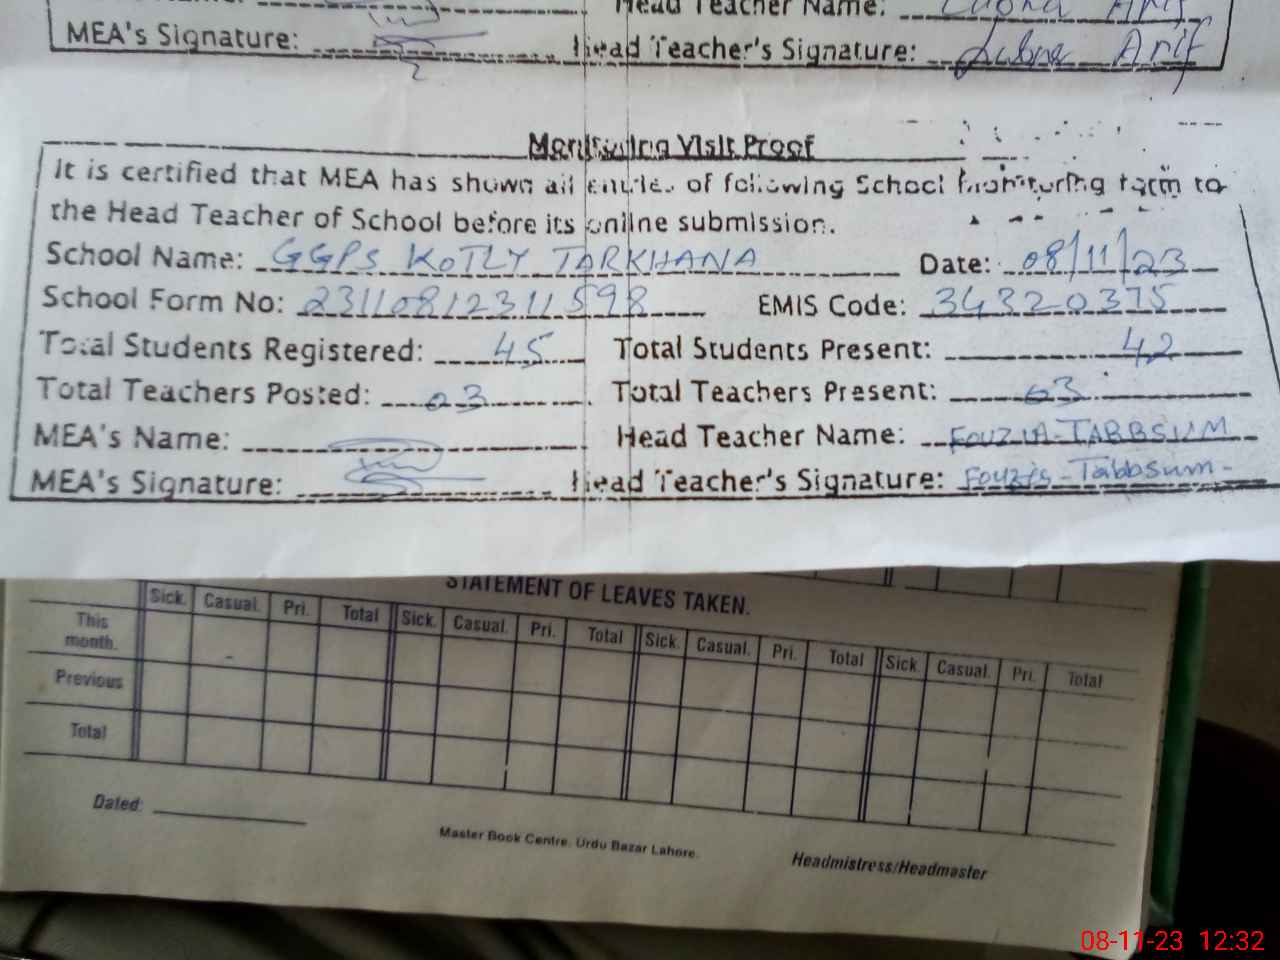 Head Teacher Name: Lubna Arif
MEA's Signature: Head Teacher's Signature: Lubna Arif
Monitoring Visit Proof
It is certified that MEA has shown all entries of following School Monitoring form to
the Head Teacher of School before its online submission.
School Name: GGPS KOTLY TARKHANA Date: 08/11/23
School Form No: 23110812311598 EMIS Code: 34320375
Total Students Registered: 45 Total Students Present: 42
Total Teachers Posted: 03 Total Teachers Present: 03
MEA's Name: Head Teacher Name: FOUZIA-TABBSUM
MEA's Signature: Head Teacher's Signature: Fouzia-Tabbsum-
STATEMENT OF LEAVES TAKEN.
Sick. Casual. Pri. Total Sick. Casual. Pri. Total Sick. Casual. Pri. Total Sick. Casual. Pri. Total
This
month.
Previous
Total
Dated:
Master Book Centre. Urdu Bazar Lahore.
Headmistress/Headmaster
08-11-23 12:32